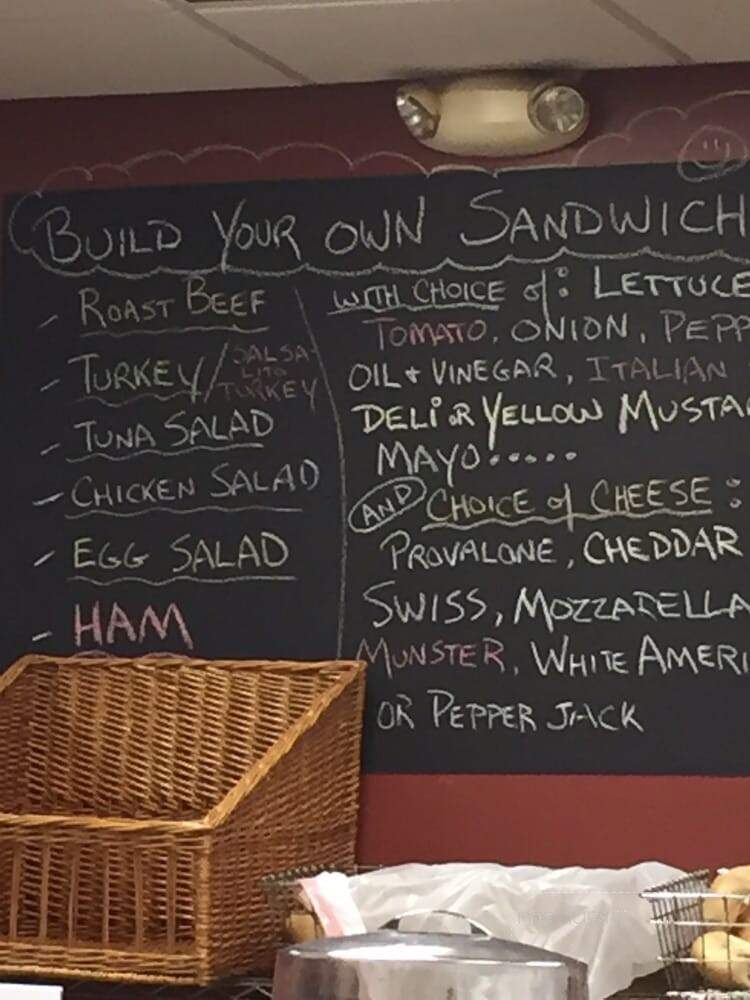 BUILD YOUR OWN SANDWICH
- ROAST BEEF
- TURKEY/SALSA-
LITO
TURKEY
- TUNA SALAD
- CHICKEN SALAD
- EGG SALAD
- HAM
WITH CHOICE of: LETTUCE
TOMATO, ONION, PEPP
OIL + VINEGAR, ITALIAN
DELI OR YELLOW MUSTA
MAYO.....
AND CHOICE of CHEESE:
PROVALONE, CHEDDAR
SWISS, MOZZARELLA
MUNSTER, WHITE AMERI
OR PEPPER JACK